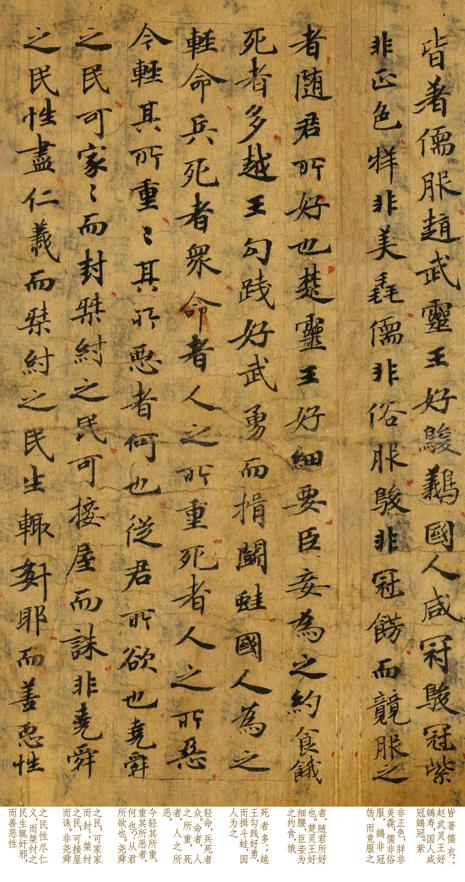 皆著儒服趙武靈王好駿鸃國人咸冠駿冠紫
非正色牂非美毳儒非俗服駿非冠餝而競服之
者随君所好也楚靈王好細要臣妾為之約食餓
死者多越王勾踐好武勇而揖鬪蛙國人為之
輕命兵死者衆命者人之所重死者人之所惡
今輕其所重〻其所惡者何也從君所欲也堯舜
之民可家〻而封桀紂之民可接屋而誅非堯舜
之民性盡仁義而桀紂之民生輙姧耶而善惡性
皆著儒衣；
赵武灵王好
国人咸
冠鵕冠。紫
非正色，牂非
美毳，儒非俗
服，鵕非冠
饬，而竞服之
者，随君所好
也。楚灵王好
细腰，臣妾为
之约食，饿
死者多；越
王勾践好勇，
而揖斗蛙，国
人为之
轻命，兵死者
众。命者，人
之所重，死
者，人之所
恶。
今轻其所重，
重其所恶者，
何也？从君
所欲也。尧舜
之民，可家家
而封，桀纣
之民，可接屋
而诛。非尧舜
之民性尽仁
义，而桀纣之
民生辄奸邪，
而善恶性